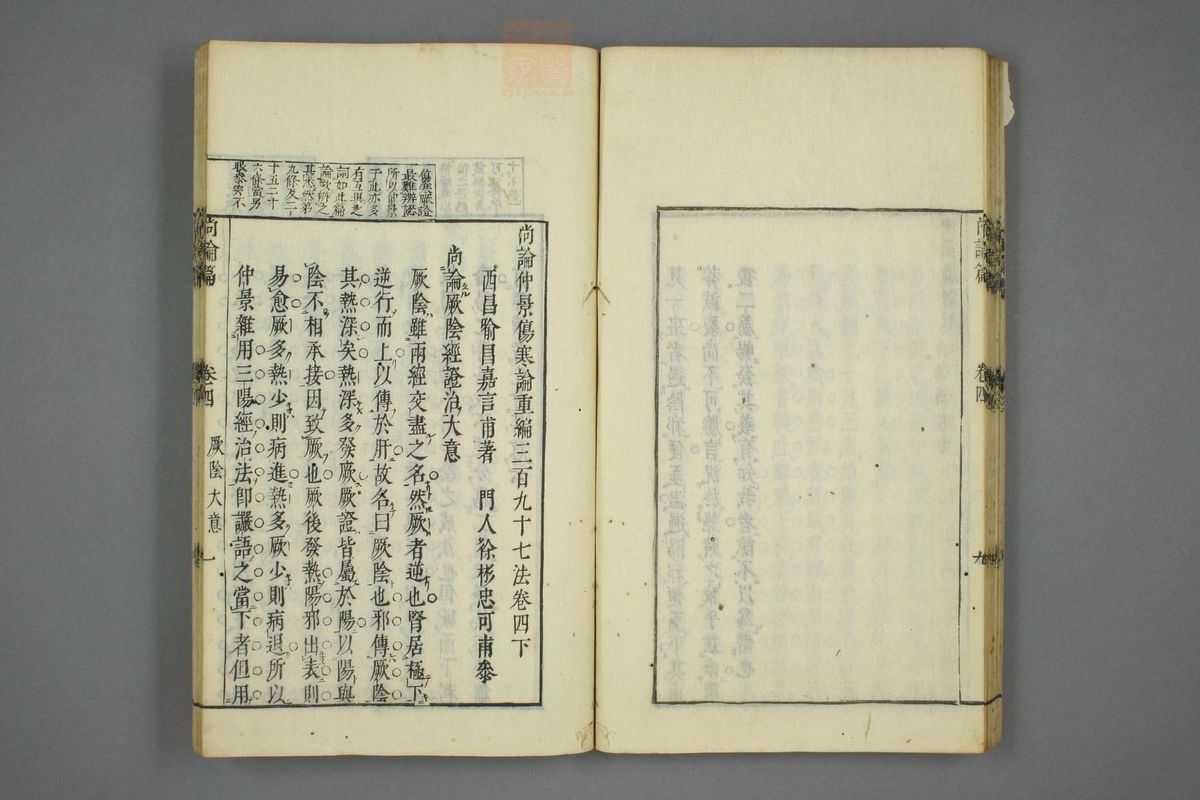 尚論篇
卷四
尚論仲景傷寒論重編三百九十七法卷四下
西昌喻昌嘉言甫著 門人徐彬忠可甫叅
尚論厥陰經證治大意
厥陰雖兩經交盡之名然厥者逆也腎居極下
逆行而上以傳於肝故名曰厥陰也邪傳厥陰
其熱深矣熱深多發厥厥證皆屬於陽以陽與
陰不相承接因致厥也厥後發熱陽邪出表則
易愈厥多熱少則病進熱多厥少則病退所以
仲景雜用三陽經治法卽讝語之當下者但用
傷寒厥證
最難辨認
所以仲景
于此亦多
有互異之
詞如此篇
論厥辨之
其悉然第
九條及二十
十五二十
六條當另
尚論篇
卷四
厥陰大意
一
zysj.com.cn